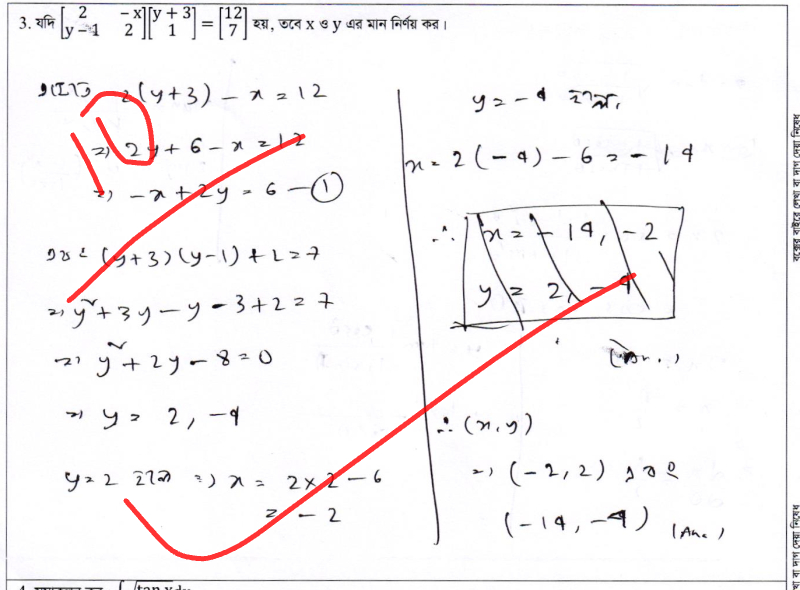 3. যদি [2 -x y-1 2][y+3 1] = [12 7] হয়, তবে x ও y এর মান নির্ণয় কর।
2(y+3) - x = 12
10
⇒ 2y + 6 - x = 12
⇒ -x + 2y = 6 - ①
(y+3)(y-1) + 2 = 7
⇒ y² + 3y - y - 3 + 2 = 7
⇒ y² + 2y - 8 = 0
⇒ y = 2, -4
y = 2 হলে ⇒ x = 2×2 - 6
= -2
y = -4 হলে,
x = 2(-4) - 6 = -14
∴ x = -14, -2
y = 2, -4
(Ans.)
∴ (x, y)
⇒ (-2, 2) এবং
(-14, -4) (Ans.)
বক্সের বাইরে লেখা বা দাগ দেয়া নিষেধ
খা বা দাগ দেয়া নিষেধ